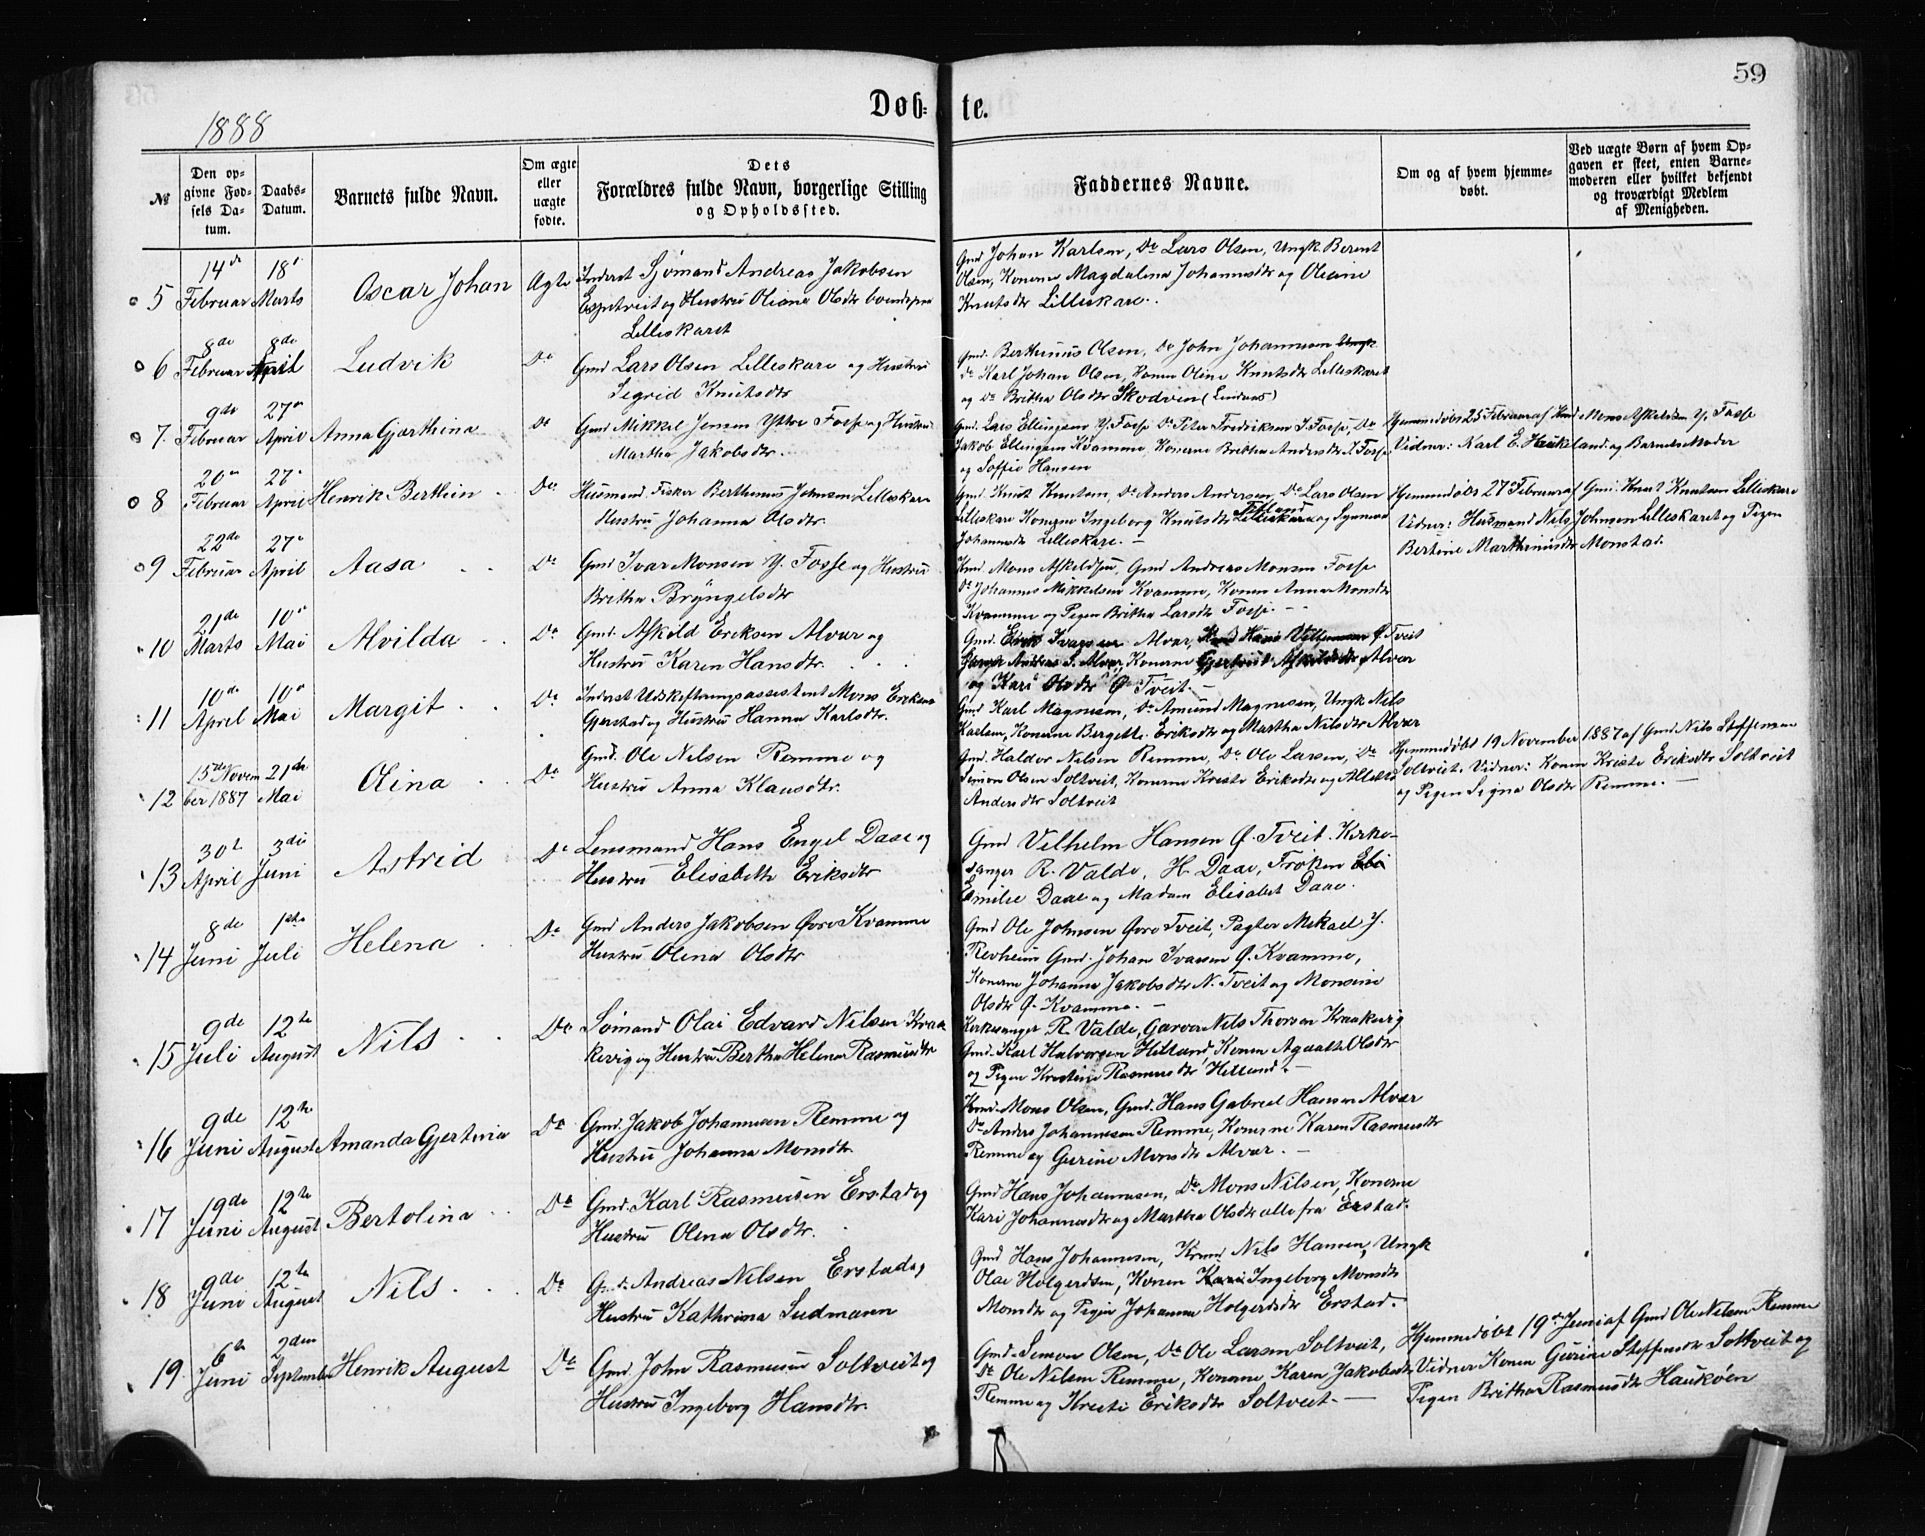 59
1888
Døb-te.
№
Den op-
givne Fød-
sels Da-
tum.
Daabs-
Datum.
Barnets fulde Navn.
Om ægte
eller
uægte
fødte.
Dets
Forældres fulde Navn, borgerlige Stilling
og Opholdssted.
Faddernes Navne.
Om og af hvem hjemme-
døbt.
Ved uægte Børn af hvem Op-
gaven er skeet, enten Barne-
moderen eller hvilket bekjendt
og troværdigt Medlem
af Menigheden.
5
14de
Februar
18
Marts
Oscar Johan
Ægte
Inderst Sjømand Andreas Jakobsen
og Hustru Oliane Olsdtr
Lilleskaret
Gmd Johan Karlsen, Do Lars Olsen, Ungk. Berent
Olsen, Konerne Magdalena Johannesdtr og Oleane
Knutsdtr Lilleskare.
6
8de
Februar
8de
April
Ludvik
Do
Gmd Lars Olsen Lilleskare og Hustru
Sigrid Knutsdtr
Gmd. Berthinius Olsen, Do John Johannesen Ungk
Do Karl Johan Olsen, Konen Oline Knutsdtr Lilleskaret
og Do Britha Olsdtr Skodvin (Lindaas)
7.
9de
Februar
27de
April
Anna Gjerthina
Do
Gmd Mikkel Jensen Ytre Fosse og Hustru
Martha Jakobsdtr.
Gmd. Lars Ellingsen Y. Fosse Do Peter Fredriksen I. Fosse, Do
Jakob Ellingsen Kvamme, Konerne Britha Andersdtr I. Fosse
og Soffie Hansen
Hjemmedøbt 25 Februar af Kmd Mons Askelsen Y. Fosse
Vidner: Karl E. Haukland og Barnets Moder
8
20de
Februar
27
April
Henrik Berthin
Do.
Husmand Fisker Berthinus Johnsen Lilleskare
Hustru Johanna Olsdtr.
Gmd Knut Knutsen, Do Anders Andersen, Do Lars Olsen
Lilleskare Konerne Ingeborg Knutsdtr og Synneva
Johannesdtr Lilleskare.
Hjemmedøbt 27 Februar af Gmd. Knut Knutsen Lilleskare
Vidner: Husmand Nils Johnsen Lilleskaret og Pigen
Bertine Marthinusdtr Monstad.
9
22de
Februar
27
April
Aasa
Do
Gmd Ivar Monsen Y. Fosse og Hustru
Britha Bryngelsdtr
Kmd. Mons Askeldsen, Gmd Andreas Monsen Fosse
Do Johannes Mikkelsen Kvamme, Konen Anna Monsdtr
Kvamme og Pigen Britha Larsdtr Fosse.
10
21de
Marts
10
Mai
Alvilda
Do
Gmd. Askild Eriksen Alvær og
Hustru Karen Hansdtr.
Gmd. Erik Alvær, Ø. Tveit
Anders S. Alvær, Konerne Gjertrud Alvær
og Kari Olsdtr Ø. Tveit.
11
10de
April
10
Mai
Margit
Do
Inderst Udskiftningsassistent Mons Eriksen
Gjerstad og Hustru Hanna Karlsdtr.
Gmd Karl Magnesen, Do Amund Magnesen, Ungk Nils
Karlsen, Konerne Bergette Eriksdtr og Martha Nilsdtr Alvær
12
15de Novem
ber 1887
21de
Mai
Olina
Do
Gmd. Ole Nilsen Remme og
Hustru Anna Klausdtr.
Gmd. Haldor Nilsen Remme, Do Ole Larsen, Do
Simon Olsen Soltveit, Konerne Kristi Eriksdtr og
Andersdtr Soltveit
Hjemmedøbt 19 November 1887 af Gmd Nils Steffensen
Soltveit. Vidner: Konen Kristi Eriksdtr Soltveit
og Pigen Signa Olsdtr Remme.
13
30te
April
3die
Juni
Astrid
Do
Lensmand Hans Engel Daae og
Hustru Elisabeth Eriksdtr
Gmd Vilhelm Hansen Ø. Tveit. Kirke-
sanger R. Valde, H. Daae, Frøken
Emilie Daae og Madam Elisabet Daae.
14
8de
Juni
1ste
Juli
Helena
Do
Gmd Anders Jakobsen Øvre Kvamme
Hustru Olina Olsdtr
Gmd Ole Johnsen Øvre Tveit, Pagter Mikael J.
Revheim Gmd. Johan Ivarsen Ø. Kvamme,
Konerne Johanna Jakobsdtr N. Tveit og Monsine
Olsdtr Ø. Kvamme.
15
9de
Juli
12te
August
Nils
Do
Sømand Olai Edvard Nilsen Kraa-
kevig og Hustru Bertha Helena Rasmusdtr
Kirkesanger R. Valde, Garver Nils Thorsen Kraakevig
Gmd. Karl Halvorsen Hilland, Konen Agaathe Olsdtr
og Pigen Kristine Rasmusdtr Hilland.
16
9de
Juni
12te
August
Amanda Gjertina
Do
Gmd. Jakob Johannesen Remme og
Hustru Johanna Monsdtr.
Kmd. Mons Olsen, Gmd. Hans Gabriel Hansen Alvær
Do Anders Johannesen Remme, Konerne Karen Rasmusdtr
Remme og Gurine Monsdtr Alvær.
17
19de
Juni
12te
August
Bertolina
Do
Gmd. Karl Rasmusen Erstad og
Hustru Olena Olsdtr.
Gmd Hans Johannesen, Do Mons Nilsen, Konerne
Kari Johannesdtr og Martha Olsdtr alle fra Erstad.
18
9de
Juni
12te
August
Nils
Do
Gmd. Andreas Nilsen Erstad og
Hustru Kathrina Ludmann
Gmd Hans Johannesen, Kmd Nils Hansen, Ungk
Olai Holgersen, Konen Kari Ingeborg Monsdtr
Monsdtr og Pigen Johanna Holgersdtr Erstad.
19
6te
Juni
2den
September
Henrik August
Do
Gmd. John Rasmusen Soltveit og
Hustru Ingeborg Hansdtr.
Gmd. Simon Olsen, Do Ole Larsen Soltveit,
Do Ole Nilsen Remme, Konerne Karen Jakobsdtr
Remme og Kristi Eriksdtr Soltveit
Hjemmedøbt 19de Juni af Gmd Ole Nilsen Remme
Vidner Konen Gurine Steffensdtr Soltveit og
Pigen Britha Rasmusdtr Haukøen